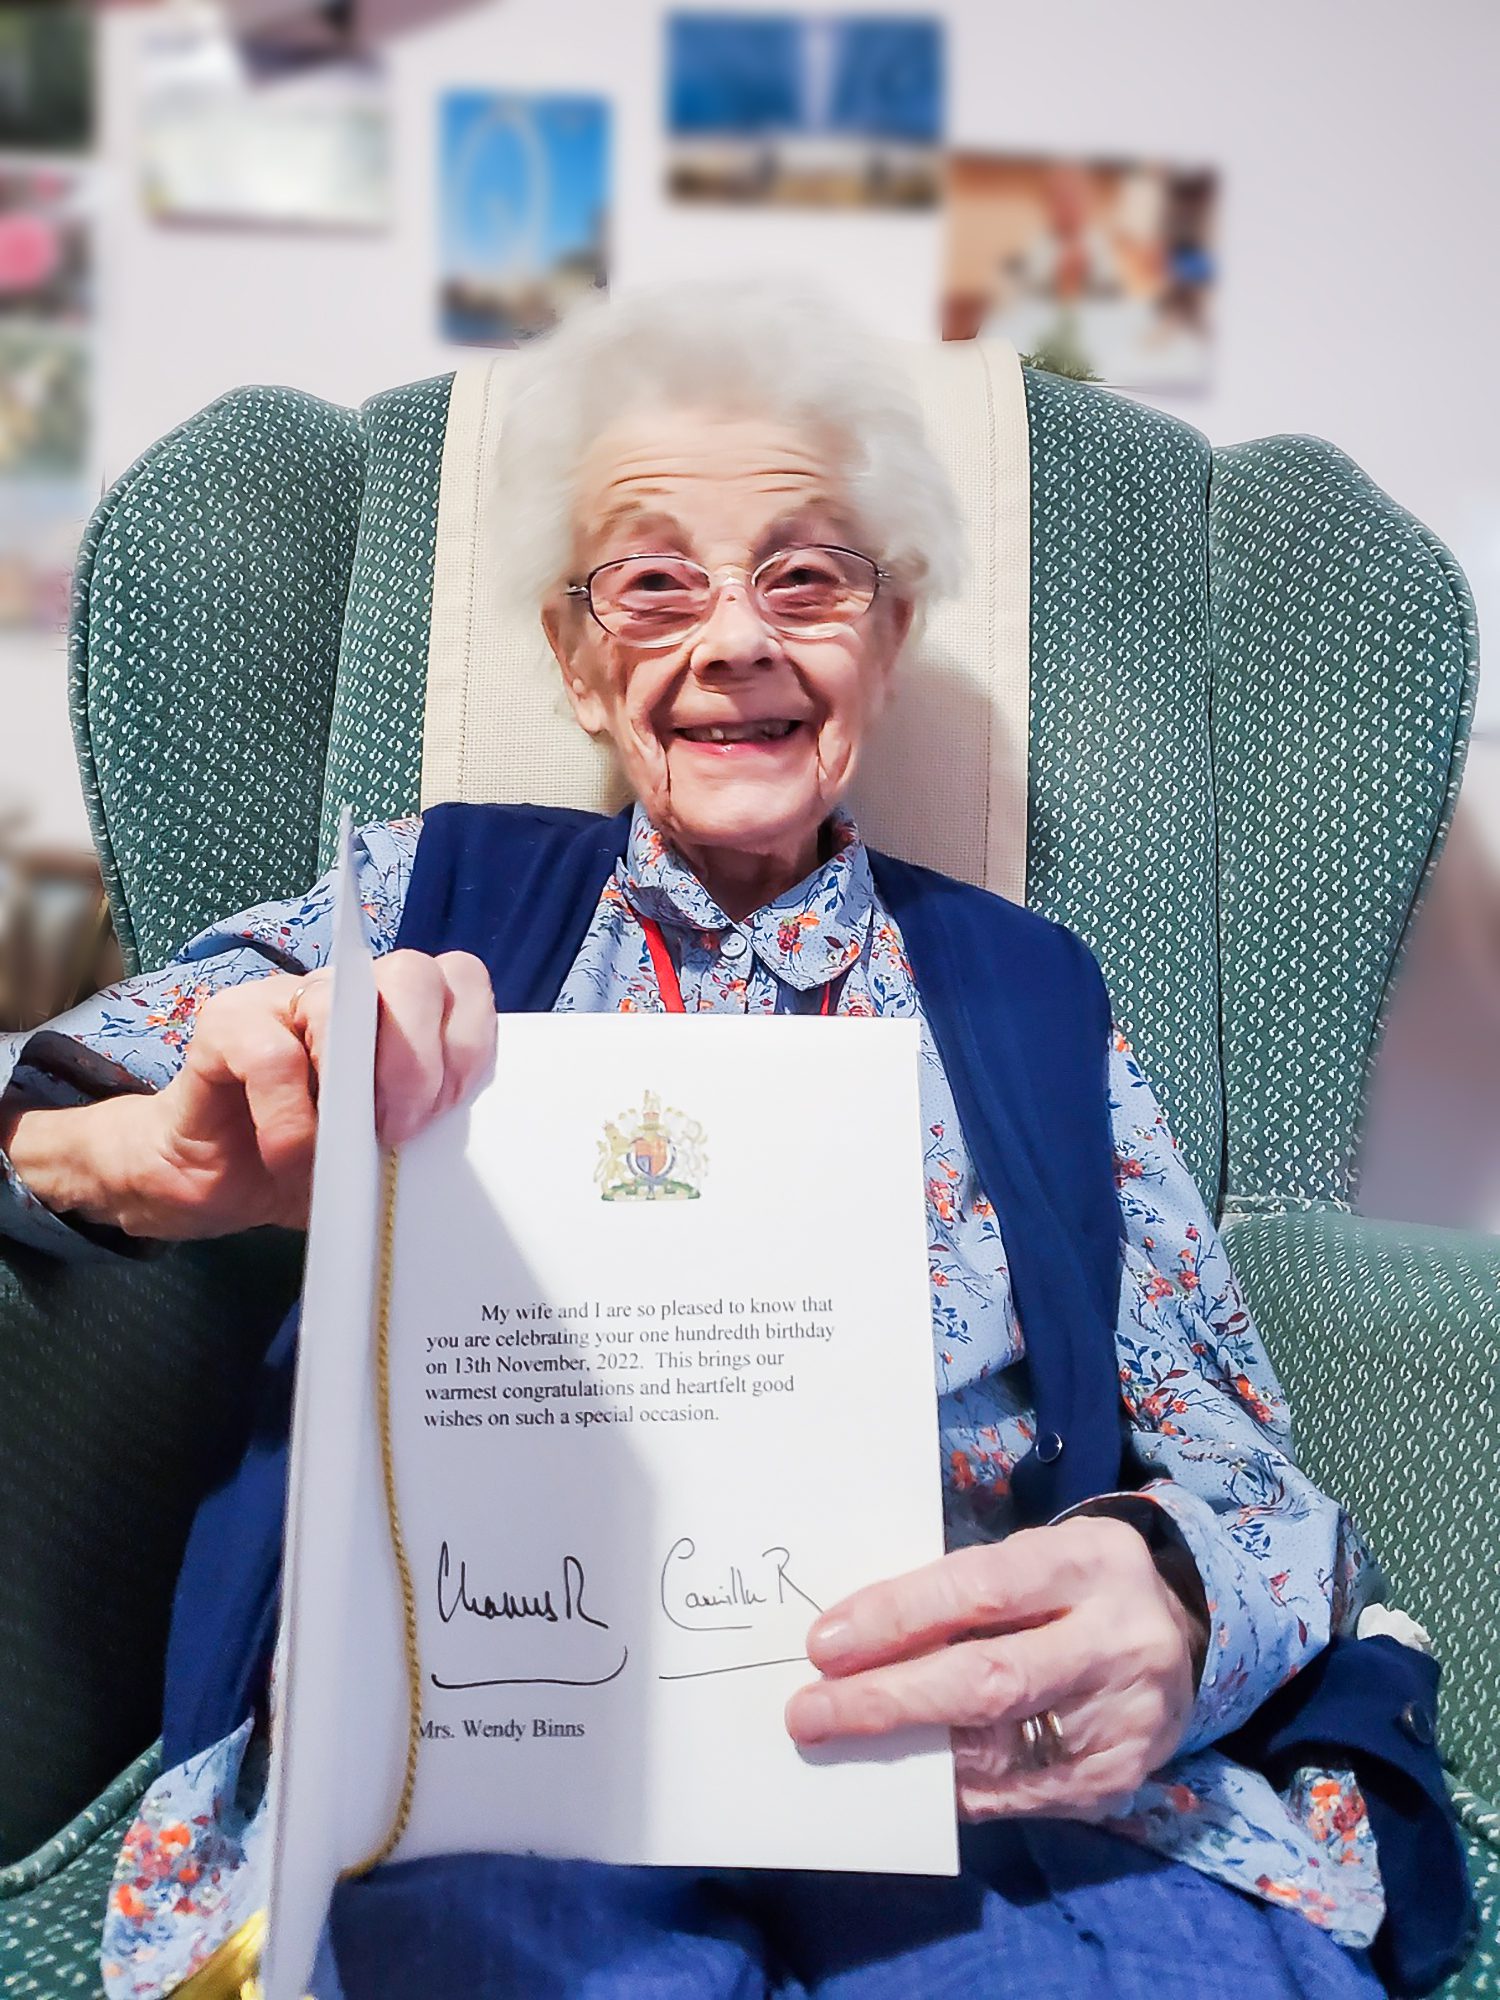 My wife and I are so pleased to know that
you are celebrating your one hundredth birthday
on 13th November, 2022. This brings our
warmest congratulations and heartfelt good
wishes on such a special occasion.
Charles R
Camilla R
Mrs. Wendy Binns